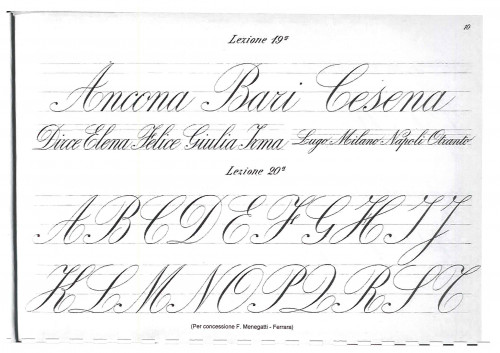 10
Lezione 19ª
Ancona Bari Cesena
Dirce Elena Felice Giulia Irma Lugo Milano Napoli Otranto
Lezione 20ª
A B C D E F G H I J
K L M N O P Q R S T
(Per concessione F. Menegatti - Ferrara)